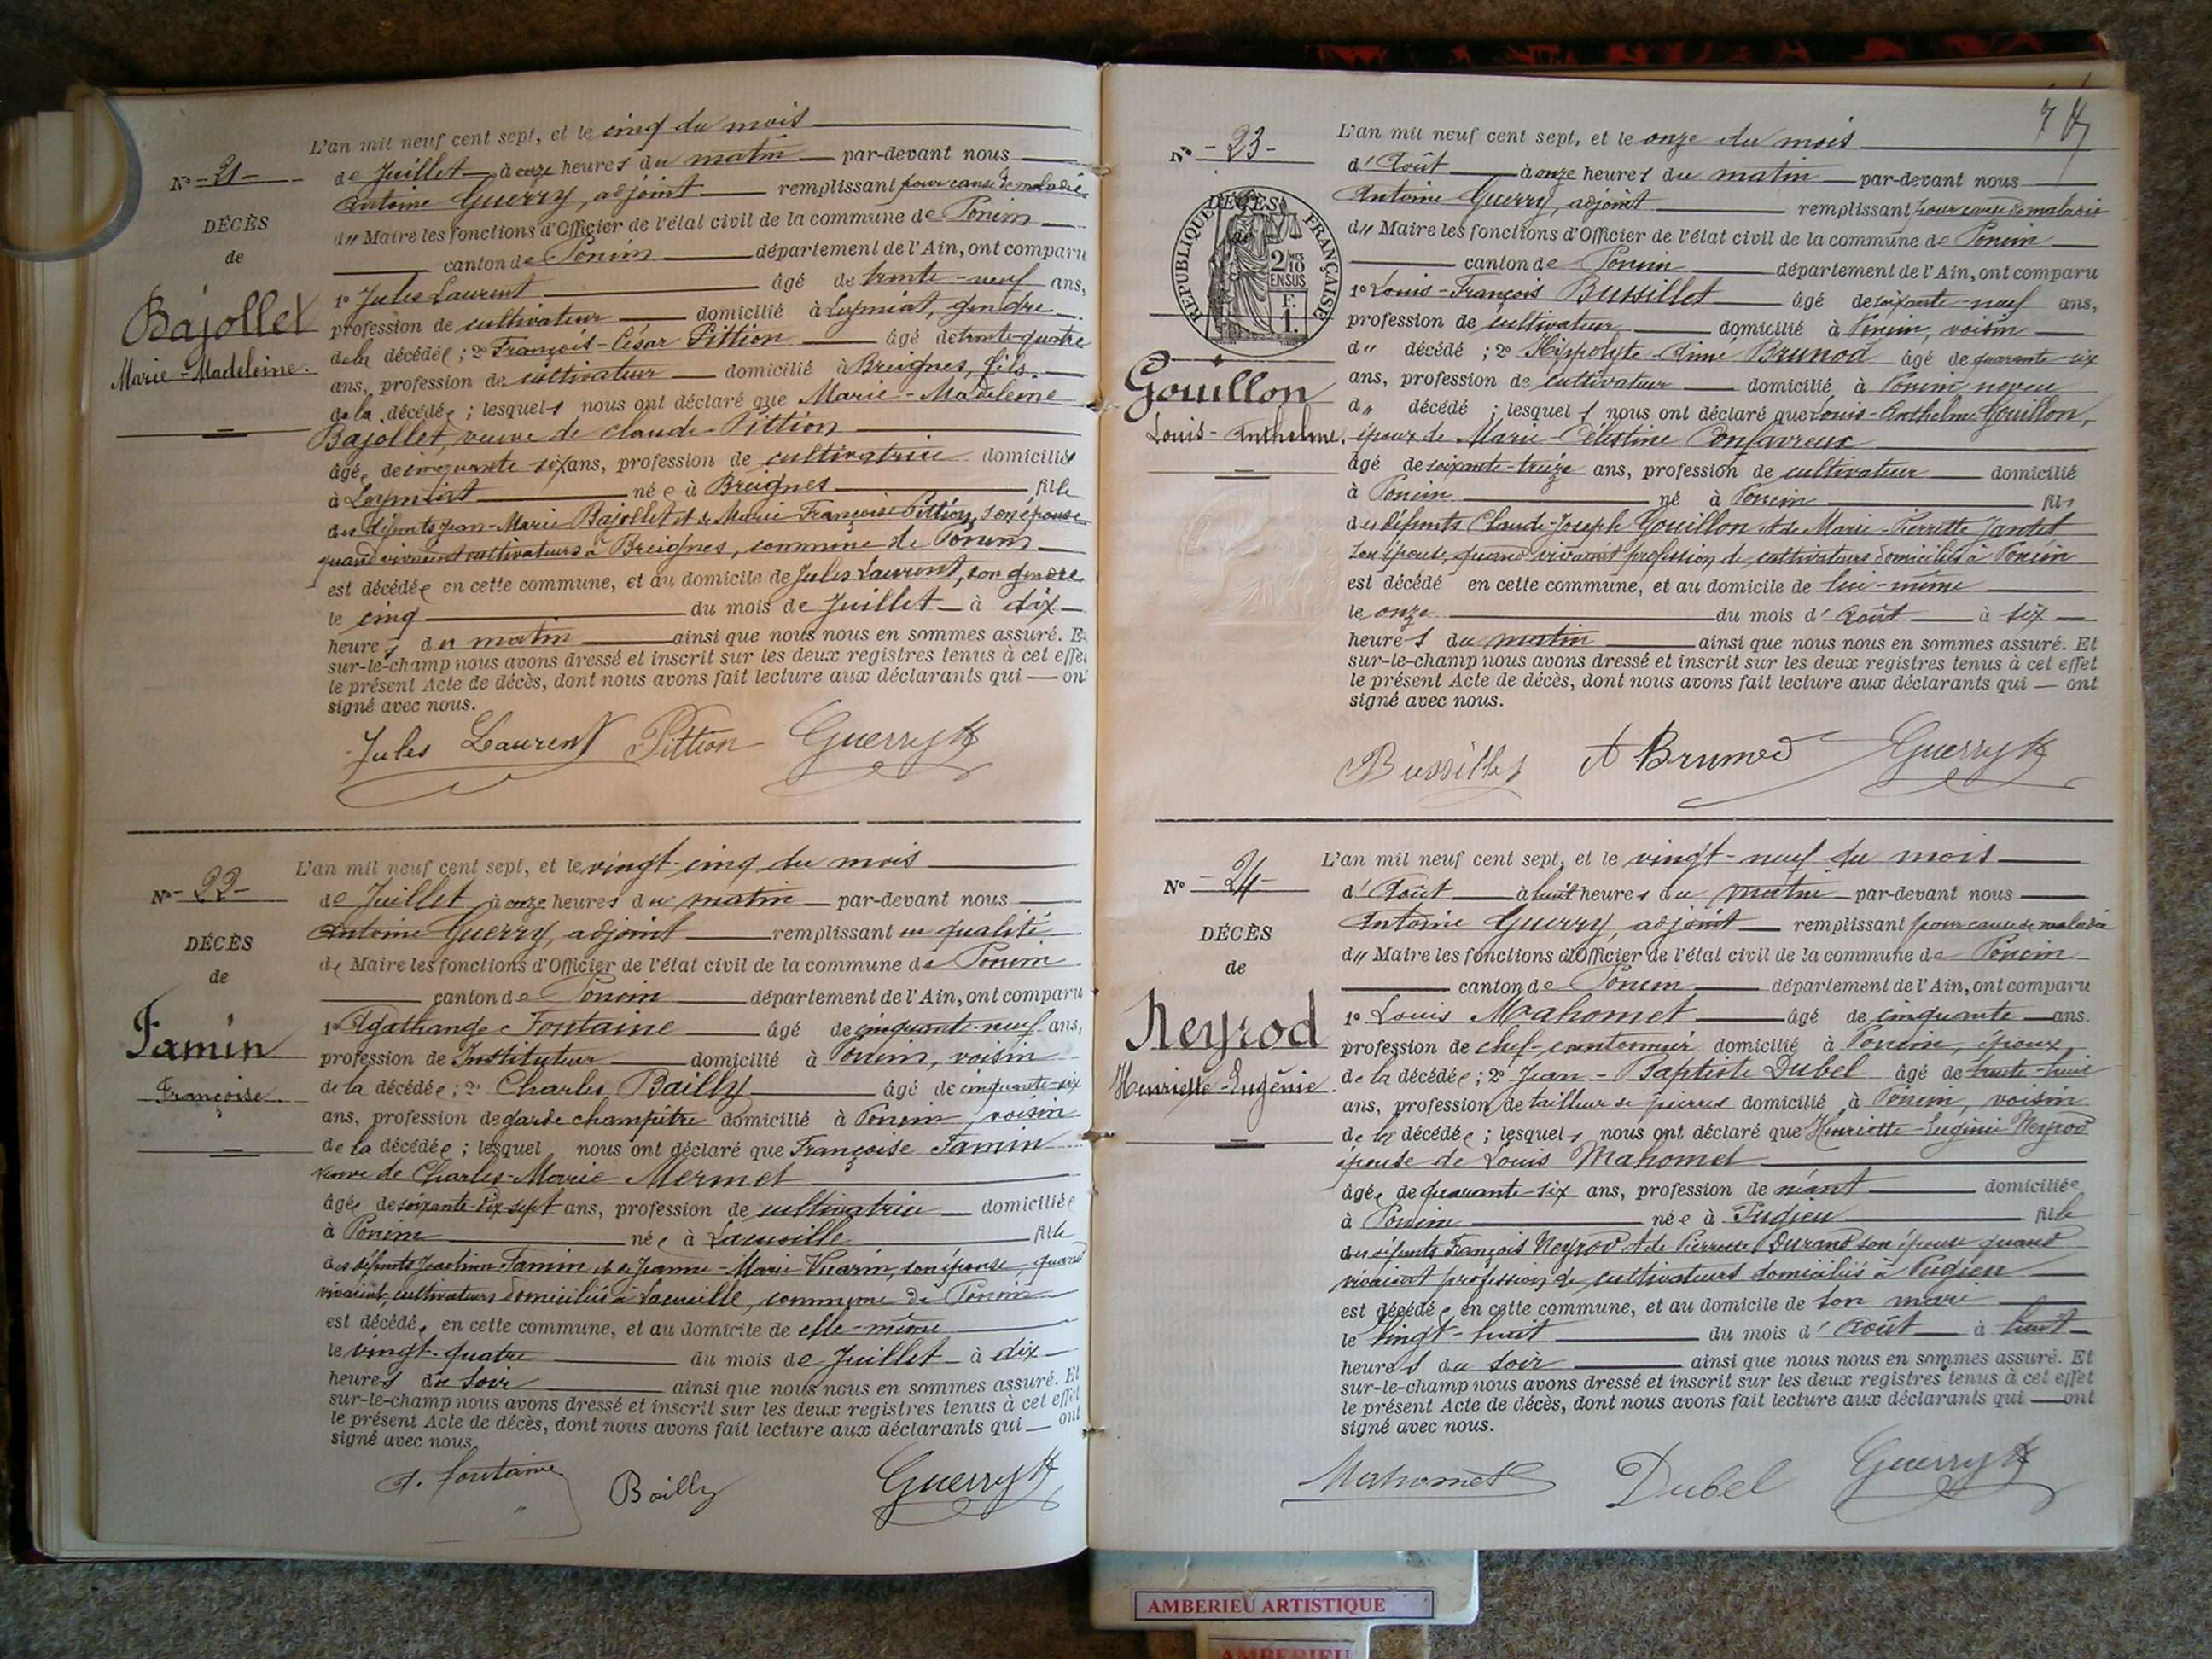 L'an mil neuf cent sept, et le cinq du mois
N° - 21 -
de Juillet à onze heures du matin par-devant nous
Antoine Guerry, adjoint remplissant pour cause de maladie
DÉCÈS
du Maire les fonctions d'Officier de l'état civil de la commune de Poncin
de
canton de Poncin département de l'Ain, ont comparu
1° Jules Laurent âgé de trente-neuf ans,
Bajollet
profession de cultivateur domicilié à Leymiat, gendre
de la décédée ; 2° François-César Pittion âgé de trente-quatre
Marie-Madeleine.
ans, profession de cultivateur domicilié à Breignes, fils
de la décédée ; lesquels nous ont déclaré que Marie-Madeleine
Bajollet, veuve de Claude Pittion
âgée de cinquante six ans, profession de cultivatrice domiciliée
à Leymiat née à Breignes fille
des défunts Jean-Marie Bajollet et de Marie Françoise Pittion, son épouse
quand vivaient cultivateurs à Breignes, commune de Poncin
est décédée en cette commune, et au domicile de Jules Laurent, son gendre
le cinq du mois de Juillet à dix
heures du matin ainsi que nous nous en sommes assuré. E
sur-le-champ nous avons dressé et inscrit sur les deux registres tenus à cet effe
le présent Acte de décès, dont nous avons fait lecture aux déclarants qui on
signé avec nous.
Jules Laurent Pittion Guerry
L'an mil neuf cent sept, et le vingt-cinq du mois
N° - 22 -
de Juillet à onze heures du matin par-devant nous
Antoine Guerry, adjoint remplissant en qualité
DÉCÈS
de Maire les fonctions d'Officier de l'état civil de la commune de Poncin
de
canton de Poncin département de l'Ain, ont comparu
1° Agathange Fontaine âgé de cinquante-neuf ans,
Famin
profession de Instituteur domicilié à Poncin, voisin
de la décédée ; 2° Charles Bailly âgé de cinquante-six
Françoise.
ans, profession de garde champêtre domicilié à Poncin, voisin
de la décédée ; lesquel nous ont déclaré que Françoise Famin
veuve de Charles-Marie Mermet
âgée de soixante-dix-sept ans, profession de cultivatrice domiciliée
à Poncin née à Lacueille fille
des défunts Joachim Famin et de Jeanne-Marie Vuarin, son épouse, quand
vivaient, cultivateurs domiciliés à Lacueille, commune de Poncin
est décédée en cette commune, et au domicile de elle-même
le vingt-quatre du mois de Juillet à dix
heures du soir ainsi que nous nous en sommes assuré. Et
sur-le-champ nous avons dressé et inscrit sur les deux registres tenus à cet effet
le présent Acte de décès, dont nous avons fait lecture aux déclarants qui ont
signé avec nous.
A. fontaine Bailly Guerry
L'an mil neuf cent sept, et le onze du mois
N° - 23 -
d'Août à onze heures du matin par-devant nous
Antoine Guerry, adjoint remplissant pour cause de maladie
DÉCÈS
de
RÉPUBLIQUE FRANÇAISE
2/10
EN SUS
F.
1.
du Maire les fonctions d'Officier de l'état civil de la commune de Poncin
canton de Poncin département de l'Ain, ont comparu
1° Louis-François Bussillet âgé de soixante-neuf ans,
profession de cultivateur domicilié à Poncin, voisin
du décédé ; 2° Hippolyte-Aimé Brunod âgé de quarante-six
Gouillon
ans, profession de cultivateur domicilié à Poncin neveu
du décédé ; lesquels nous ont déclaré que Louis-Anthelme Gouillon,
Louis-Anthelme.
époux de Marie-Célestine Confavreux
âgé de soixante-treize ans, profession de cultivateur domicilié
à Poncin né à Poncin fils
des défunts Claude-Joseph Gouillon et de Marie-Pierrette Jantet
son épouse, quand vivaient profession de cultivateurs domiciliés à Poncin
est décédé en cette commune, et au domicile de lui-même
le onze du mois d'Août à six
heures du matin ainsi que nous nous en sommes assuré. Et
sur-le-champ nous avons dressé et inscrit sur les deux registres tenus à cet effet
le présent Acte de décès, dont nous avons fait lecture aux déclarants qui ont
signé avec nous.
Bussillet A Brunod Guerry
L'an mil neuf cent sept, et le vingt-neuf du mois
N° - 24 -
d'Août à huit heures du matin par-devant nous
Antoine Guerry, adjoint remplissant pour cause de maladie
DÉCÈS
du Maire les fonctions d'Officier de l'état civil de la commune de Poncin
de
canton de Poncin département de l'Ain, ont comparu
1° Louis Mahomet âgé de cinquante ans.
Neyrod
profession de chef-cantonnier domicilié à Poncin, époux
de la décédée ; 2° Jean-Baptiste Dubel âgé de trente-huit
Henriette-Eugénie.
ans, profession de tailleur de pierres domicilié à Poncin, voisin
de la décédée ; lesquels nous ont déclaré que Henriette-Eugénie Neyrod
épouse de Louis Mahomet
âgée de quarante-six ans, profession de néant domiciliée
à Poncin née à Pugieu fille
des défunts François Neyrod et de Pierrette Durand son épouse quand
vivaient profession de cultivateurs domiciliés à Pugieu
est décédée en cette commune, et au domicile de son mari
le vingt-huit du mois d'Août à huit
heures du soir ainsi que nous nous en sommes assuré. Et
sur-le-champ nous avons dressé et inscrit sur les deux registres tenus à cet effet
le présent Acte de décès, dont nous avons fait lecture aux déclarants qui ont
signé avec nous.
Mahomet Dubel Guerry
AMBERIEU ARTISTIQUE
AMBERIEU